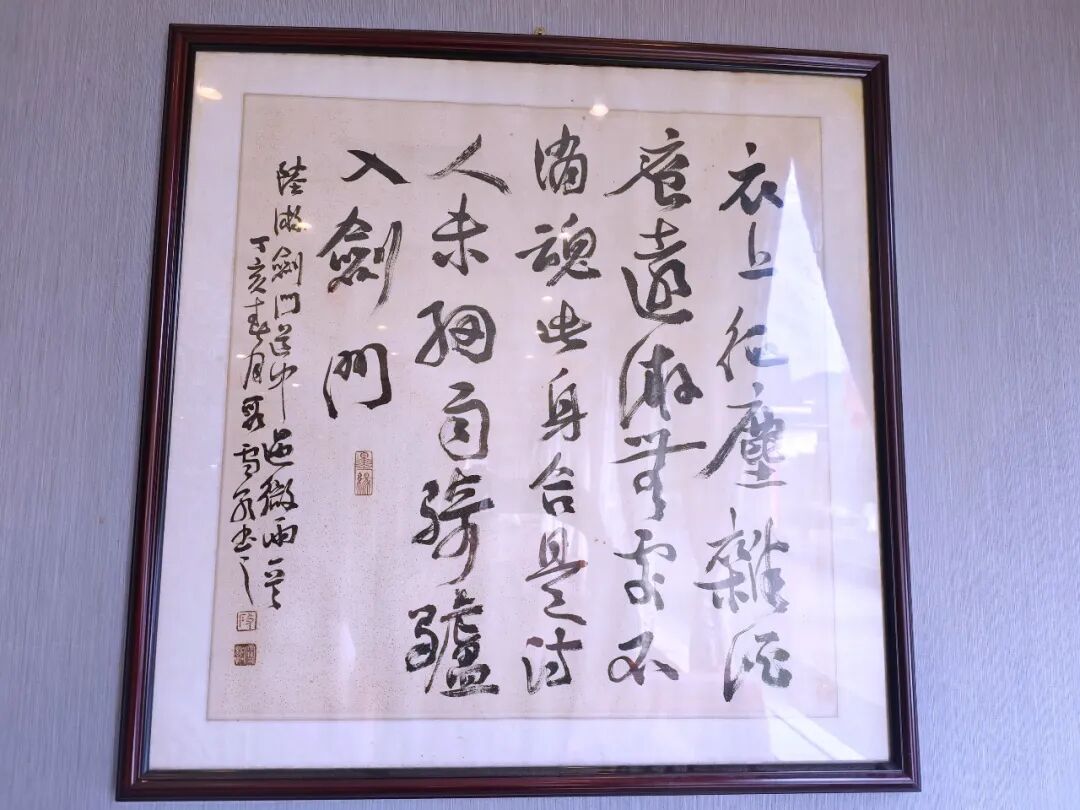 衣上征塵雜酒
痕遠遊無處不
消魂此身合是詩
人未細雨騎驢
入劍門
陸游劍門道中遇微雨一首
丁亥春月雪書之